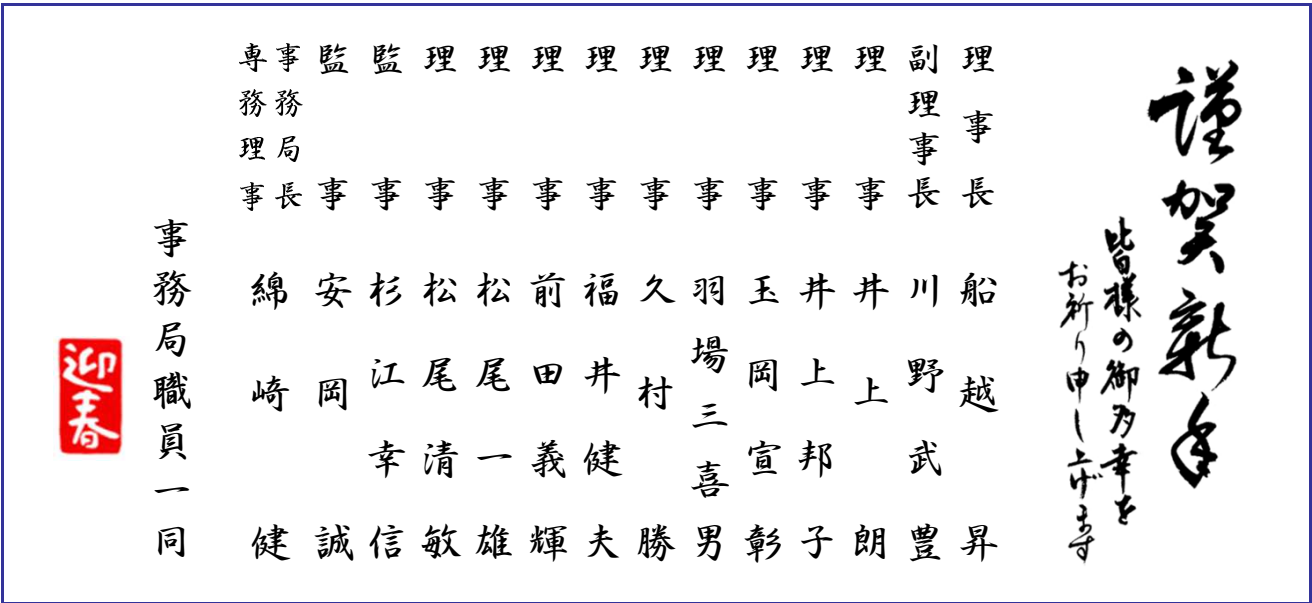 謹賀新年
皆様の御多幸を
お祈り申し上げます
理事長 船越昇
副理事長 川野武豊
理事 井上朗
理事 井上邦子
理事 玉岡宣彰
理事 羽場三喜男
理事 久村勝
理事 福井健夫
理事 前田義輝
理事 松尾一雄
理事 松尾清敏
監事 杉江幸信
監事 安岡誠
事務局長
専務理事 綿崎健
事務局職員一同
迎春